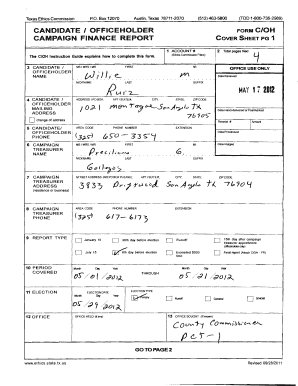 Texas Ethics Commission P.O. Box 12070 Austin, Texas 78711-2070 (512) 463-5800 (TDD 1-800-735-2989)
CANDIDATE / OFFICEHOLDER FORM C/OH
CAMPAIGN FINANCE REPORT COVER SHEET PG 1
The C/OH Instruction Guide explains how to complete this form.
1 ACCOUNT #
2 Total pages filed:
4
3 CANDIDATE / OFFICEHOLDER NAME
MS / MRS / MR FIRST MI
Willie M
NICKNAME LAST SUFFIX
Ruiz
OFFICE USE ONLY
Date Received
MAY 17 2012
4 CANDIDATE / OFFICEHOLDER MAILING ADDRESS
change of address
ADDRESS / PO BOX; APT / SUITE #; CITY; STATE; ZIP CODE
1021 Montague San Angelo Tx
76905
5 CANDIDATE / OFFICEHOLDER PHONE
AREA CODE PHONE NUMBER EXTENSION
(325) 650-3354
Receipt # Amount
6 CAMPAIGN TREASURER NAME
MS / MRS / MR FIRST MI
G.
NICKNAME LAST SUFFIX
Gallegos
7 CAMPAIGN TREASURER ADDRESS
(residence or business)
CITY; STATE; ZIP CODE
3833 San Angelo Tx 76904
8 CAMPAIGN TREASURER PHONE
AREA CODE PHONE NUMBER EXTENSION
(325) 617-6173
9 REPORT TYPE
January 15 30th day before election Runoff 15th day after campaign treasurer appointment (officeholder only)
July 15 8th day before election Exceeded $500 limit Final report (Attach C/OH - FR)
10 PERIOD COVERED
Month Day Year Month Day Year
05/01/2012 THROUGH 05/21/2012
11 ELECTION
ELECTION DATE
Month Day Year
05/29/2012
ELECTION TYPE
Primary Runoff General Special
12 OFFICE
OFFICE HELD (if any)
13 OFFICE SOUGHT (if known)
County Commissioner
PCT-1
GO TO PAGE 2
www.ethics.state.tx.us Revised 09/28/2011